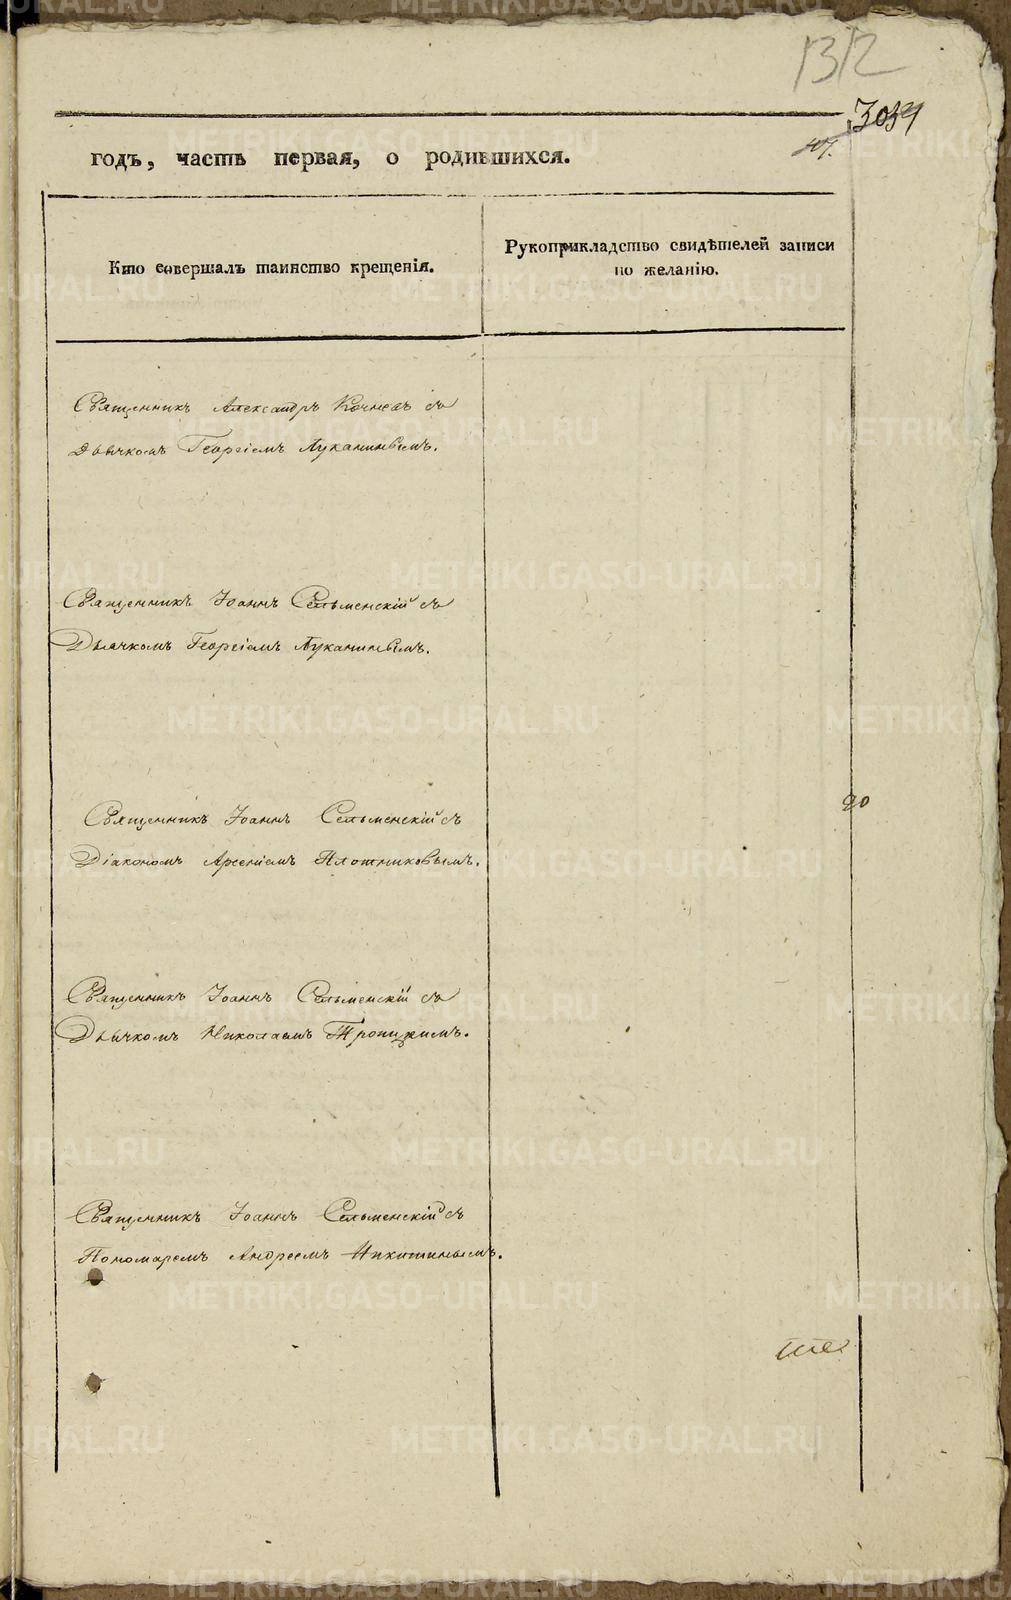 1312
годъ, часть первая, о родившихся.
Кто совершалъ таинство крещенія.
Рукоприкладство свидѣтелей записи
по желанію.
Священникъ Александръ Кочневъ съ
дьячкомъ Георгіемъ Луканинымъ.
Священникъ Іоаннъ Сельменскій съ
Дьячкомъ Георгіемъ Луканинымъ.
20
Священникъ Іоаннъ Сельменскій съ
Діакономъ Арсеніемъ Плотниковымъ.
Священникъ Іоаннъ Сельменскій съ
Дьячкомъ Николаемъ Троицкимъ.
Священникъ Іоаннъ Сельменскій съ
Пономаремъ Андреемъ Никитинымъ.
METRIKI.GASO-URAL.RU